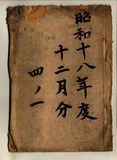 昭和十八年度
十二月分
四ノ一